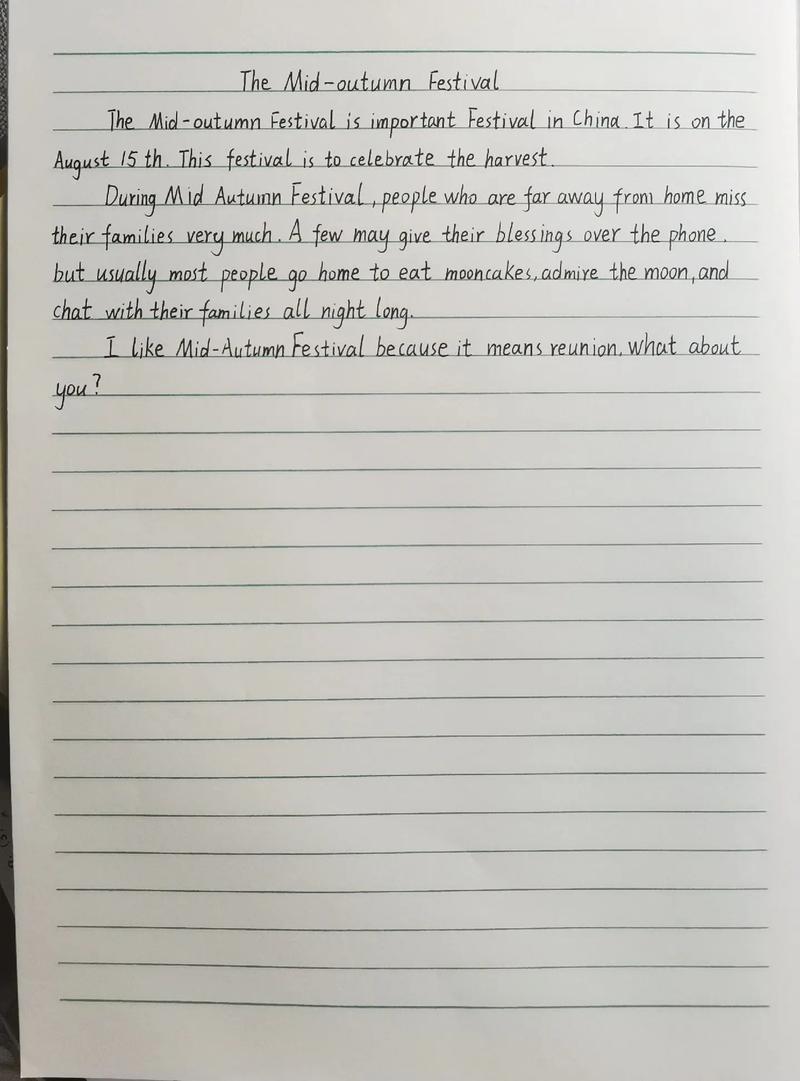 The Mid-outumn Festival
The Mid-outumn Festival is important Festival in China. It is on the
August 15 th. This festival is to celebrate the harvest.
During Mid Autumn Festival, people who are far away from home miss
their families very much. A few may give their blessings over the phone.
but usually most people go home to eat mooncakes, admire the moon, and
chat with their families all night long.
I like Mid-Autumn Festival because it means reunion. What about
you?